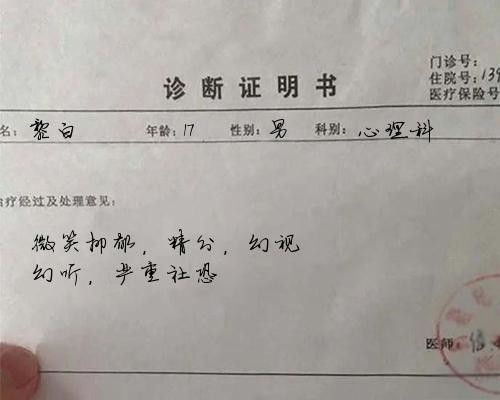 门诊号:
诊断证明书 住院号: 139
医疗保险号
名: 黎白 年龄: 17 性别: 男 科别: 心理科
治疗经过及处理意见:
微笑抑郁, 精分, 幻视
幻听, 严重社恐
医师: